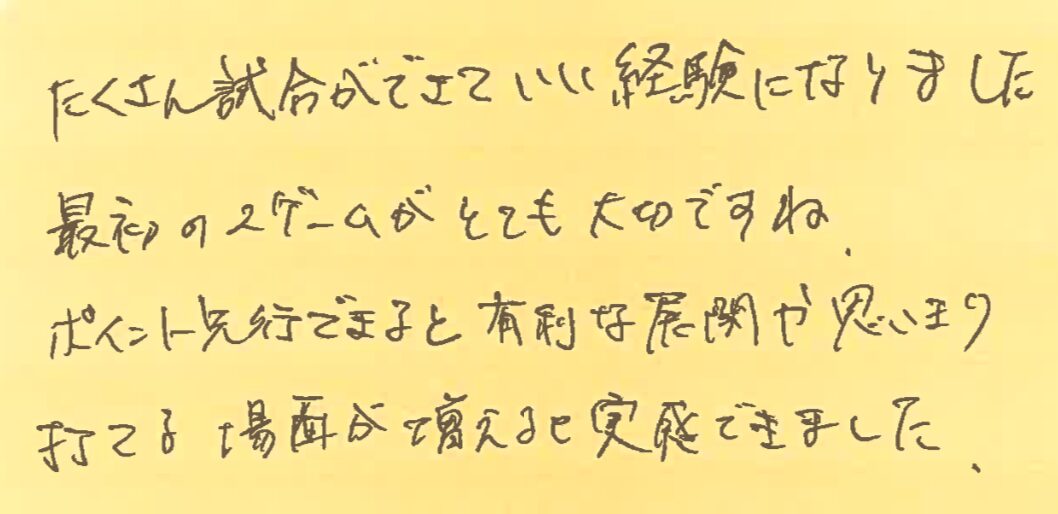 たくさん試合ができていい経験になりました
最初の2ゲームがとても大切ですね.
ポイント先行できると有利な展開や思いきり
打てる場面が増えると実感できました.